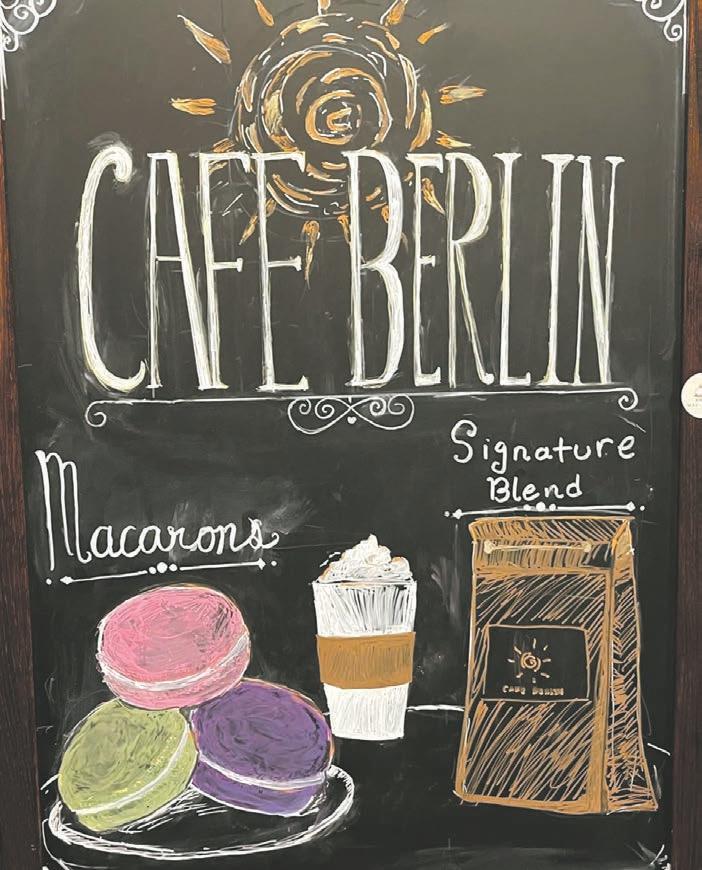 CAFE BERLIN
Signature
Blend
Macarons
CAFE BERLIN